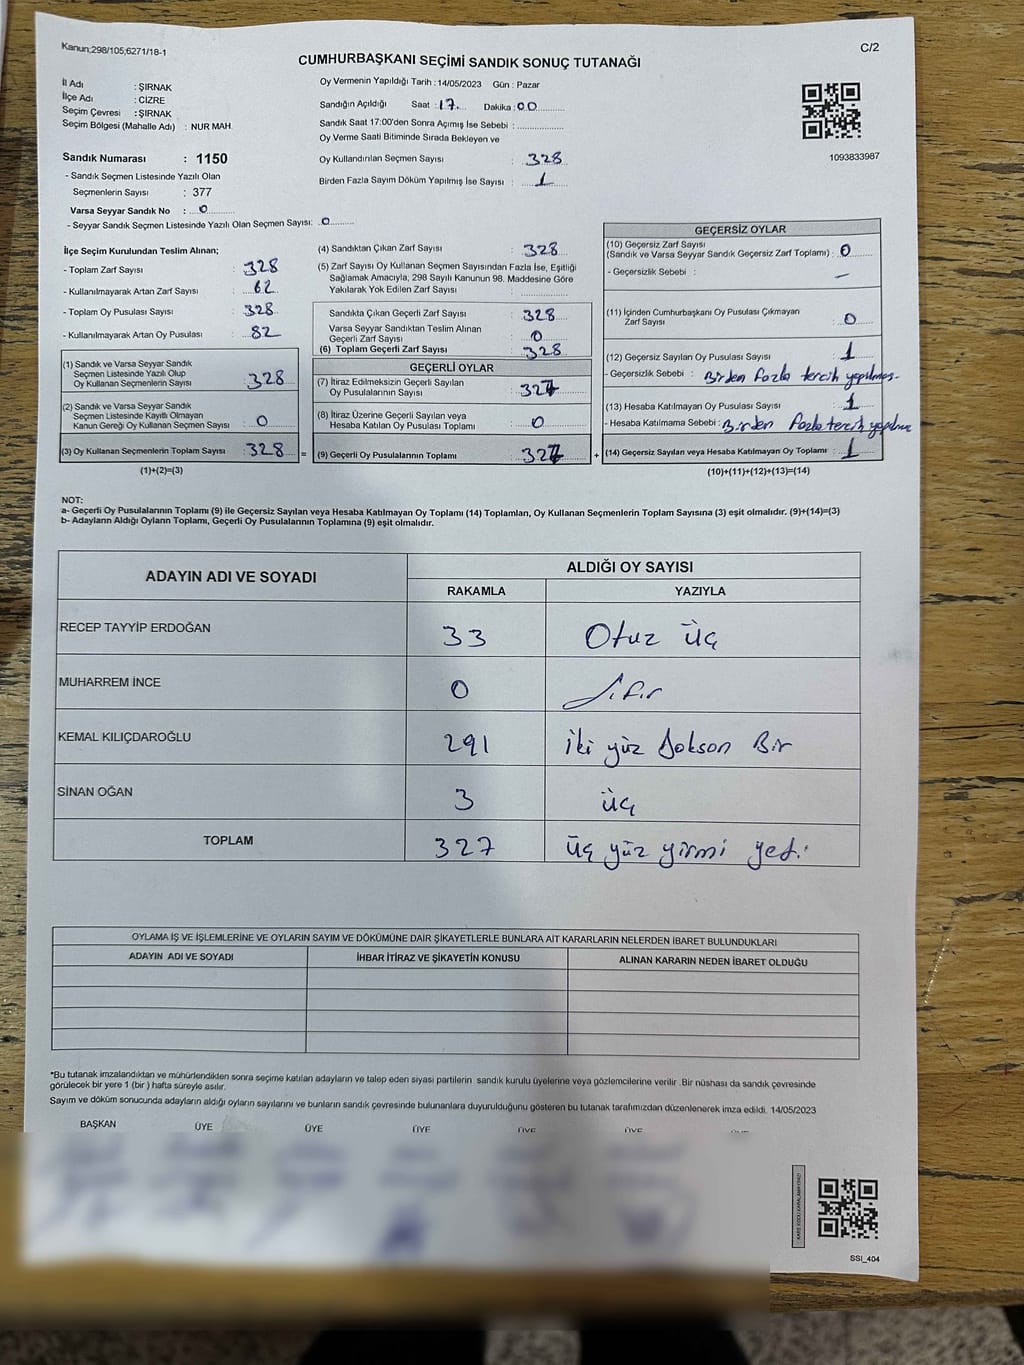 Kanun;298/105;6271/18-1
C/2
CUMHURBAŞKANI SEÇİMİ SANDIK SONUÇ TUTANAĞI
İl Adı : ŞIRNAK
İlçe Adı : CİZRE
Seçim Çevresi : ŞIRNAK
Seçim Bölgesi (Mahalle Adı) : NUR MAH.
Sandık Numarası : 1150
- Sandık Seçmen Listesinde Yazılı Olan
Seçmenlerin Sayısı : 377
Varsa Seyyar Sandık No : 0
- Seyyar Sandık Seçmen Listesinde Yazılı Olan Seçmen Sayısı: 0
Oy Vermenin Yapıldığı Tarih : 14/05/2023 Gün : Pazar
Sandığın Açıldığı Saat : 17 Dakika : 00
Sandık Saat 17:00'den Sonra Açımış İse Sebebi :
Oy Verme Saati Bitiminde Sırada Bekleyen ve
Oy Kullandırılan Seçmen Sayısı : 328
Birden Fazla Sayım Döküm Yapılmış İse Sayısı : 1
1093833987
İlçe Seçim Kurulundan Teslim Alınan;
- Toplam Zarf Sayısı : 328
- Kullanılmayarak Artan Zarf Sayısı : 62
- Toplam Oy Pusulası Sayısı : 328
- Kullanılmayarak Artan Oy Pusulası : 82
(1) Sandık ve Varsa Seyyar Sandık
Seçmen Listesinde Yazılı Olup
Oy Kullanan Seçmenlerin Sayısı : 328
(2) Sandık ve Varsa Seyyar Sandık
Seçmen Listesinde Kayıtlı Olmayan
Kanun Gereği Oy Kullanan Seçmen Sayısı : 0
(3) Oy Kullanan Seçmenlerin Toplam Sayısı : 328
(1)+(2)=(3)
=
(4) Sandıktan Çıkan Zarf Sayısı : 328
(5) Zarf Sayısı Oy Kullanan Seçmen Sayısından Fazla İse, Eşitliği
Sağlamak Amacıyla, 298 Sayılı Kanunun 98. Maddesine Göre
Yakılarak Yok Edilen Zarf Sayısı :
Sandıkta Çıkan Geçerli Zarf Sayısı : 328
Varsa Seyyar Sandıktan Teslim Alınan
Geçerli Zarf Sayısı : 0
(6) Toplam Geçerli Zarf Sayısı : 328
GEÇERLİ OYLAR
(7) İtiraz Edilmeksizin Geçerli Sayılan
Oy Pusulasının Sayısı : 327
(8) İtiraz Üzerine Geçerli Sayılan veya
Hesaba Katılan Oy Pusulası Toplamı : 0
(9) Geçerli Oy Pusulalarının Toplamı : 327
+
GEÇERSİZ OYLAR
(10) Geçersiz Zarf Sayısı
(Sandık ve Varsa Seyyar Sandık Geçersiz Zarf Toplamı) : 0
- Geçersizlik Sebebi : —
(11) İçinden Cumhurbaşkanı Oy Pusulası Çıkmayan
Zarf Sayısı : 0
(12) Geçersiz Sayılan Oy Pusulası Sayısı : 1
- Geçersizlik Sebebi : Birden fazla tercih yapılmış.
(13) Hesaba Katılmayan Oy Pusulası Sayısı : 1
- Hesaba Katılmama Sebebi : Birden fazla tercih
(14) Geçersiz Sayılan veya Hesaba Katılmayan Oy Toplamı : 1
(10)+(11)+(12)+(13)=(14)
NOT:
a- Geçerli Oy Pusulalarının Toplamı (9) ile Geçersiz Sayılan veya Hesaba Katılmayan Oy Toplamı (14) Toplamları, Oy Kullanan Seçmenlerin Toplam Sayısına (3) eşit olmalıdır. (9)+(14)=(3)
b- Adayların Aldığı Oyların Toplamı, Geçerli Oy Pusulalarının Toplamına (9) eşit olmalıdır.
ADAYIN ADI VE SOYADI
ALDIĞI OY SAYISI
RAKAMLA YAZIYLA
RECEP TAYYİP ERDOĞAN 33 Otuz üç
MUHARREM İNCE 0 Sıfır
KEMAL KILIÇDAROĞLU 291 iki yüz doksan Bir
SİNAN OĞAN 3 üç
TOPLAM 327 üç yüz yirmi yedi
OYLAMA İŞ VE İŞLEMLERİNE VE OYLARIN SAYIM VE DÖKÜMÜNE DAİR ŞİKAYETLERLE BUNLARA AİT KARARLARIN NELERDEN İBARET BULUNDUKLARI
ADAYIN ADI VE SOYADI İHBAR İTİRAZ VE ŞİKAYETİN KONUSU ALINAN KARARIN NEDEN İBARET OLDUĞU
*Bu tutanak imzalandıktan ve mühürlendikten sonra seçime katılan adayların ve talep eden siyasi partilerin sandık kurulu üyelerine veya gözlemcilerine verilir .Bir nüshası da sandık çevresinde
görülecek bir yere 1 (bir ) hafta süreyle asılır.
Sayım ve döküm sonucunda adayların aldığı oyların sayılarını ve bunların sandık çevresinde bulunanlara duyurulduğunu gösteren bu tutanak tarafımızdan düzenlenerek imza edildi. 14/05/2023
BAŞKAN ÜYE ÜYE ÜYE ÜYE ÜYE
SSI_404